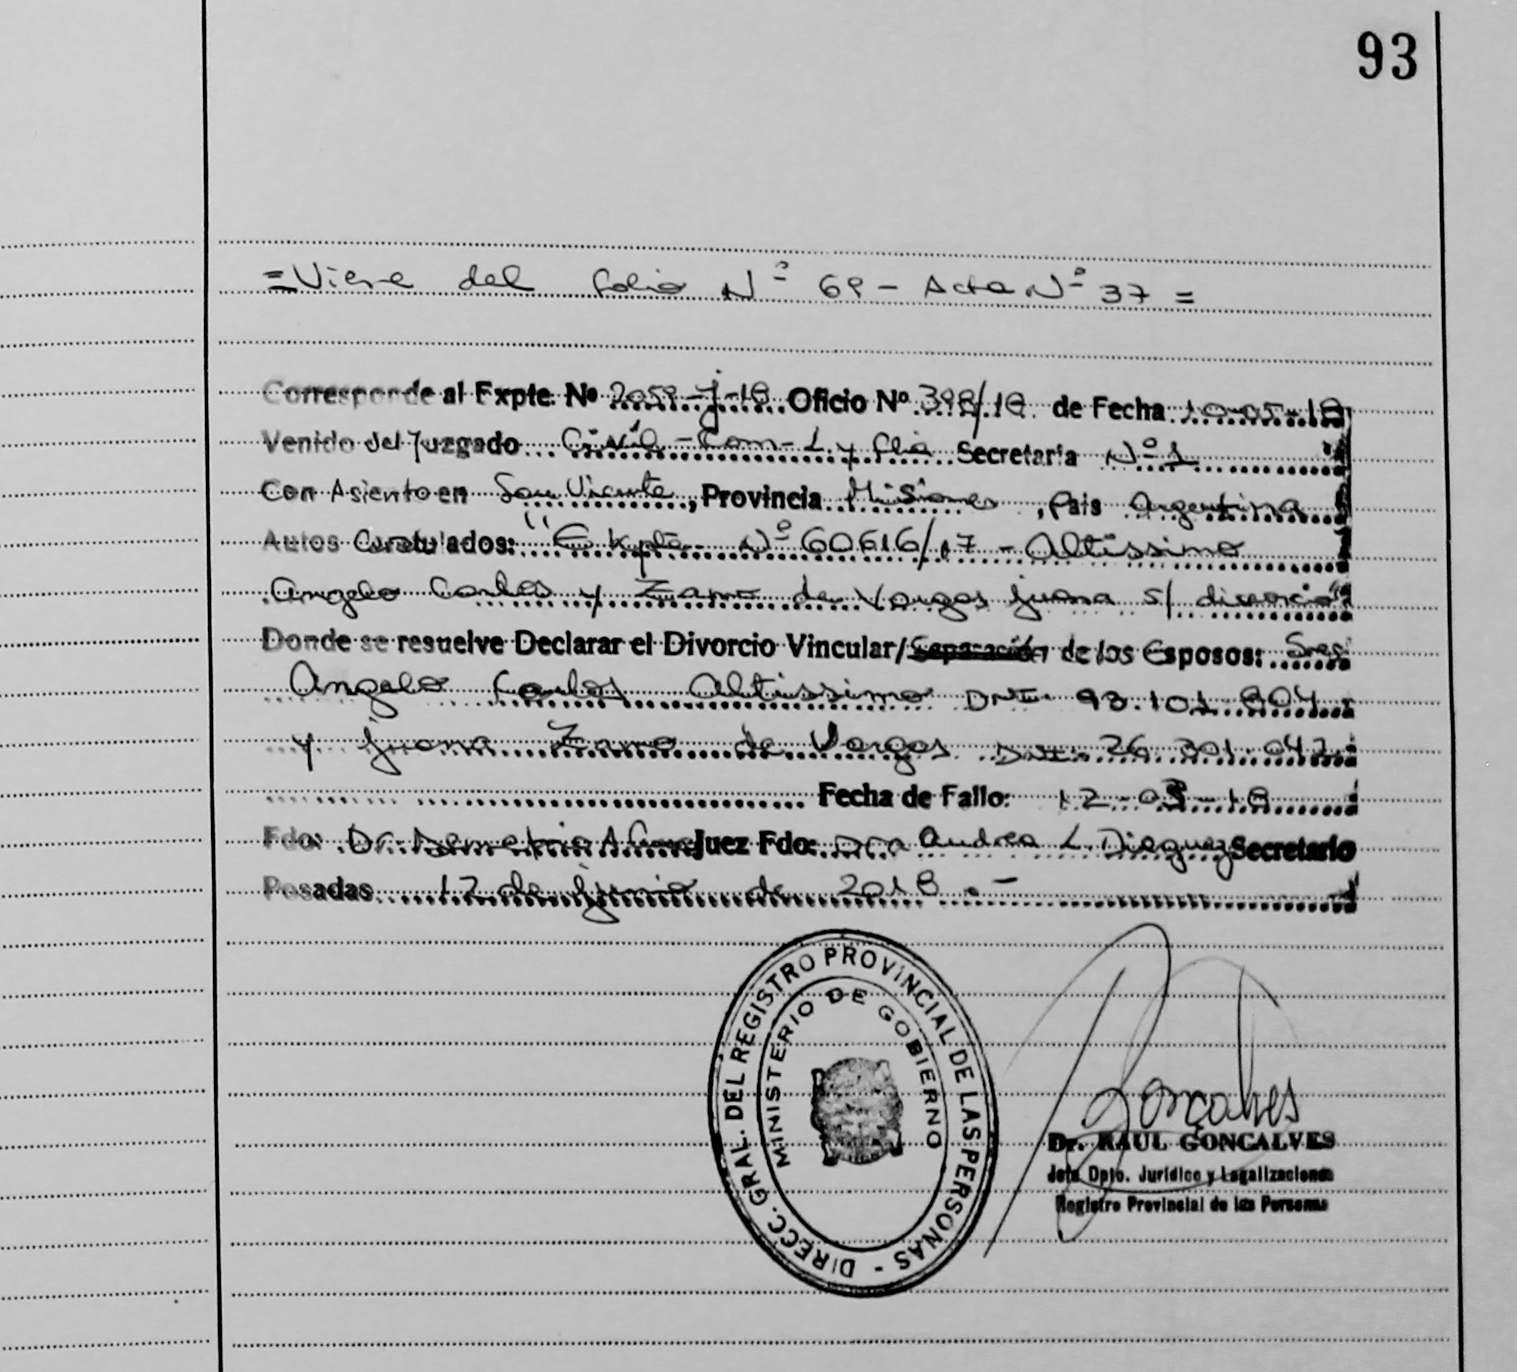 93
=Viene del folio Nº 69 - Acta Nº 37 =
Corresponde al Expte. Nº 2059-J-18 Oficio Nº 398/18 de Fecha 10-05-18
Venido del Juzgado Civil - Com - L. y Flia Secretaria Nº 1
Con Asiento en San Vicente, Provincia Misiones, Pais Argentina
Autos Caratulados: "Expte Nº 60616/17 - Altissimo
Angelo Carlos y Zamo de Vargas Juana s/ divorcio"
Donde se resuelve Declarar el Divorcio Vincular/Separación de los Esposos: Sres
Angelo Carlos Altissimo DNI 93.101.804
y Juana Zamo de Vargas DNI 26.301.047
Fecha de Fallo: 12-03-18
Fdo: Dr. Demetrio A. Juez Fdo: Dra Andrea L. Dieguez Secretario
Posadas 12 de Junio de 2018.-
DIRECC. GRAL. DEL REGISTRO PROVINCIAL DE LAS PERSONAS -
MINISTERIO DE GOBIERNO
Goncalves
Dr. RAUL GONCALVES
Jefe Dpto. Jurídico y Legalizaciones
Registro Provincial de las Personas